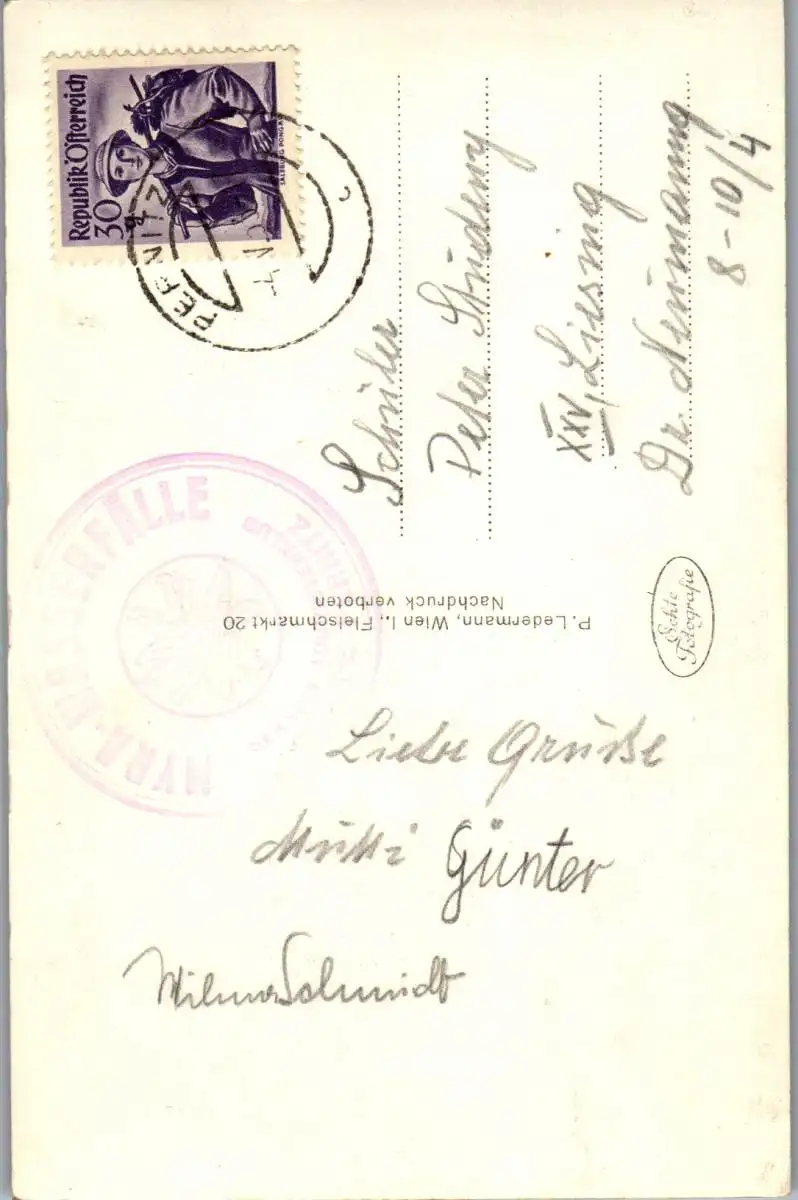 Republik Österreich
30 g
SALZBURG PONGAU
PERNITZ
Schüler
Peter Studeny
XXV, Liesing
Dr. Neumanng
8-10/4
MYRA-WASSERFÄLLE
P. Ledermann, Wien I., Fleischmarkt 20
Nachdruck verboten
Echte
Fotografie
Liebe Grüße
Mutti Günter
Wilma Schmidt